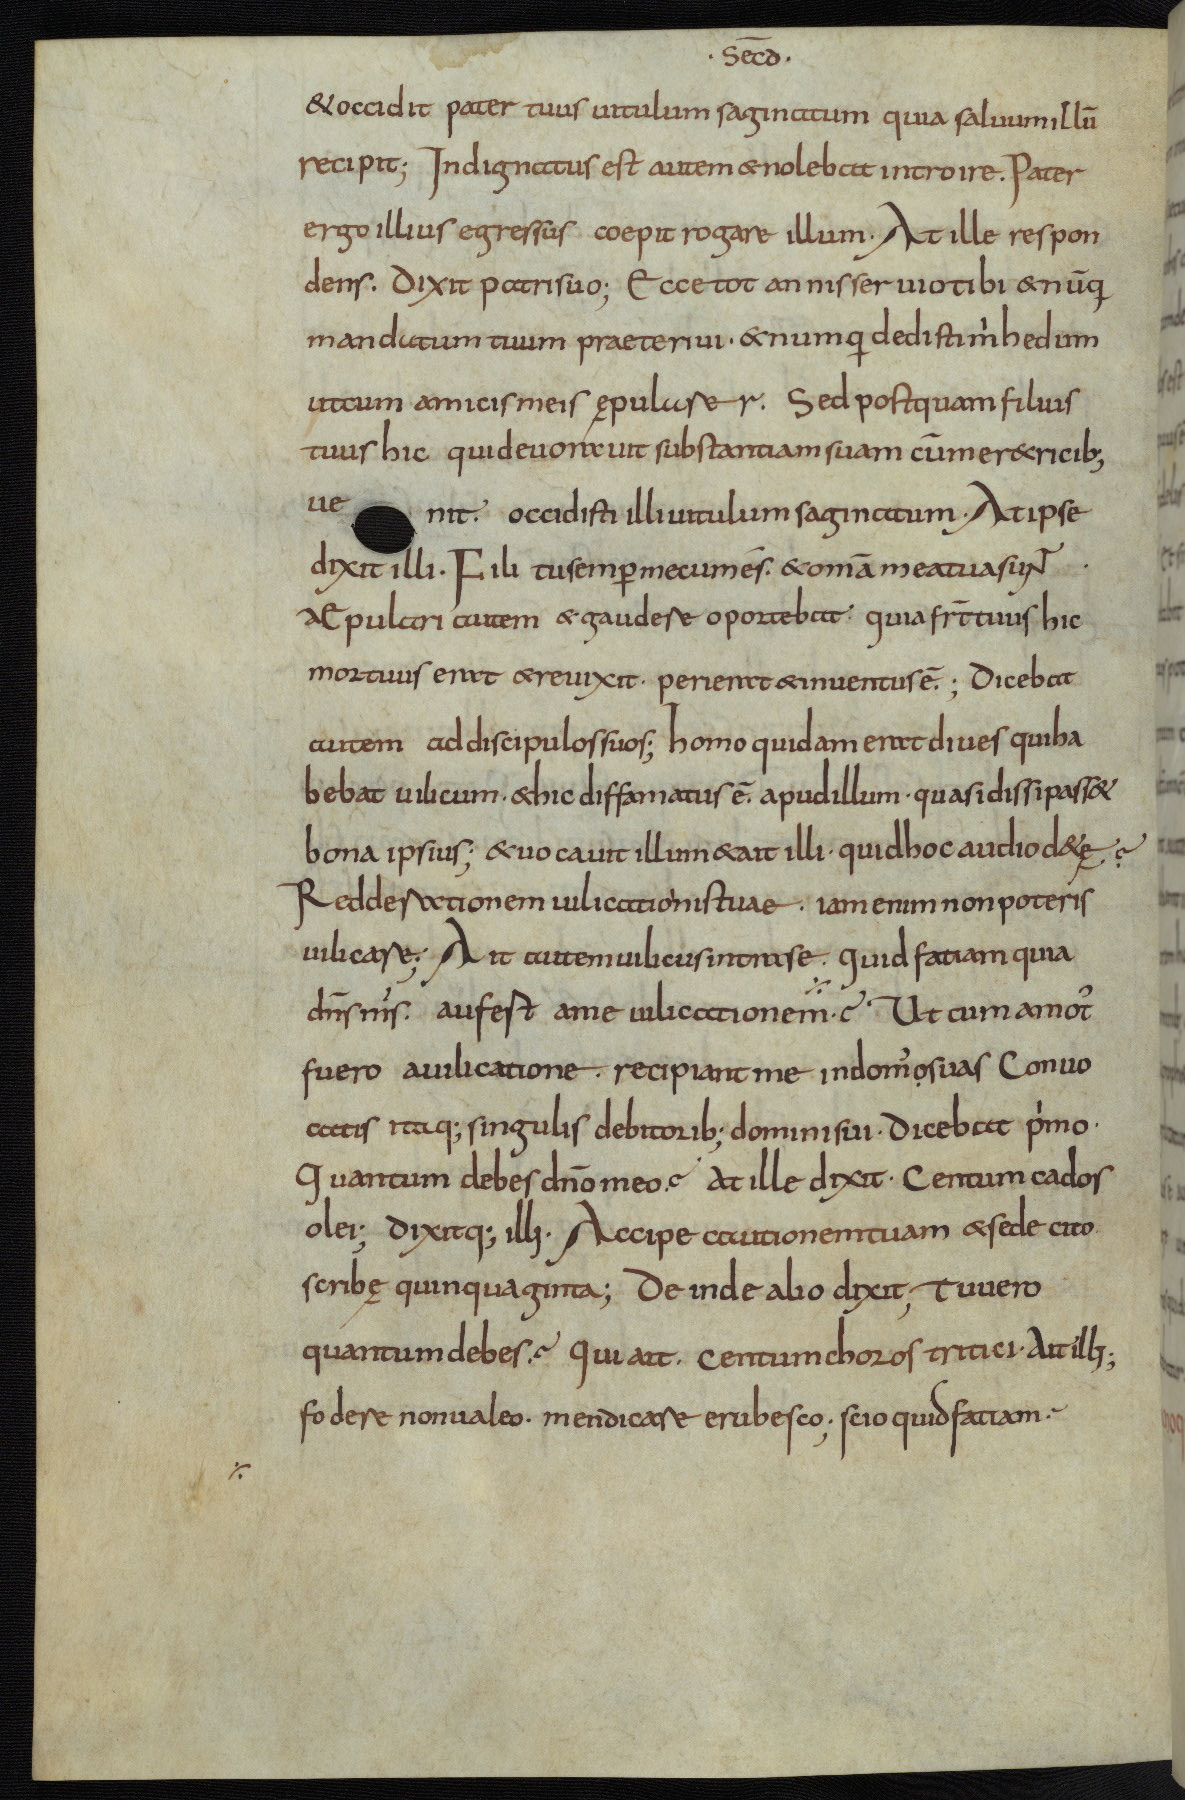 · Sēcd ·
&occidit pater tuus uitulum saginatum quia saluumillū
recipit; Indignatus est autem &nolebat introire. Pater
ergo illius egressus coepit rogare illum · At ille respon
dens. Dixit patrisuo; Ecce tot annis seruiotibi &nūq
mandatum tuum praeteriui · &numq dedistim̀ hedum
utcum amicismeis ępularer. Sed postquam filius
tuus hic quideuorauit substantiamsuam cūmer&ricib;
ue nit. occidisti illiuitulumsaginatum · Atipse
dixit illi · Fili tusemp̱mecumēs. &omā meatuasunt ·
AEpulari autem &gaudere oportebat quia fr̄ttuus hic
mortuus erat &reuixit · perierat &inuentusē. ; Dicebat
autem addiscipulossuos; homo quidam erat diues quiha
bebat uilicum · &hic diffamatus ē. apudillum · quasidissipass&
bona ipsius; &uocauit illum &ait illi · quidhoc audio d&ę.
Redderationem uilicationistuae · iam enim non poteris
uilicare; Ait autemuilicusintrase · Quid fatiam quia
dn̄s m̄s. aufest ame uilicationem̄ · Ut cum amot᷒
fuero auilicatione · recipiant me indom᷒osuas Conuo
catis itaq; singulis debitorib; dominisui · Dicebat pimo ·
Quantum debes dn̄o meo. At ille dixit · Centum cados
olei; dixitq; illi · Accipe cautionemtuam &sede cito
scribę quinquaginta; De inde alio dixit; Tuuero
quantumdebes. Qui ait · Centumchoros tritici · Ait illi;
fodere nonualeo · mendicare erubesco; scio quidfatiam ·